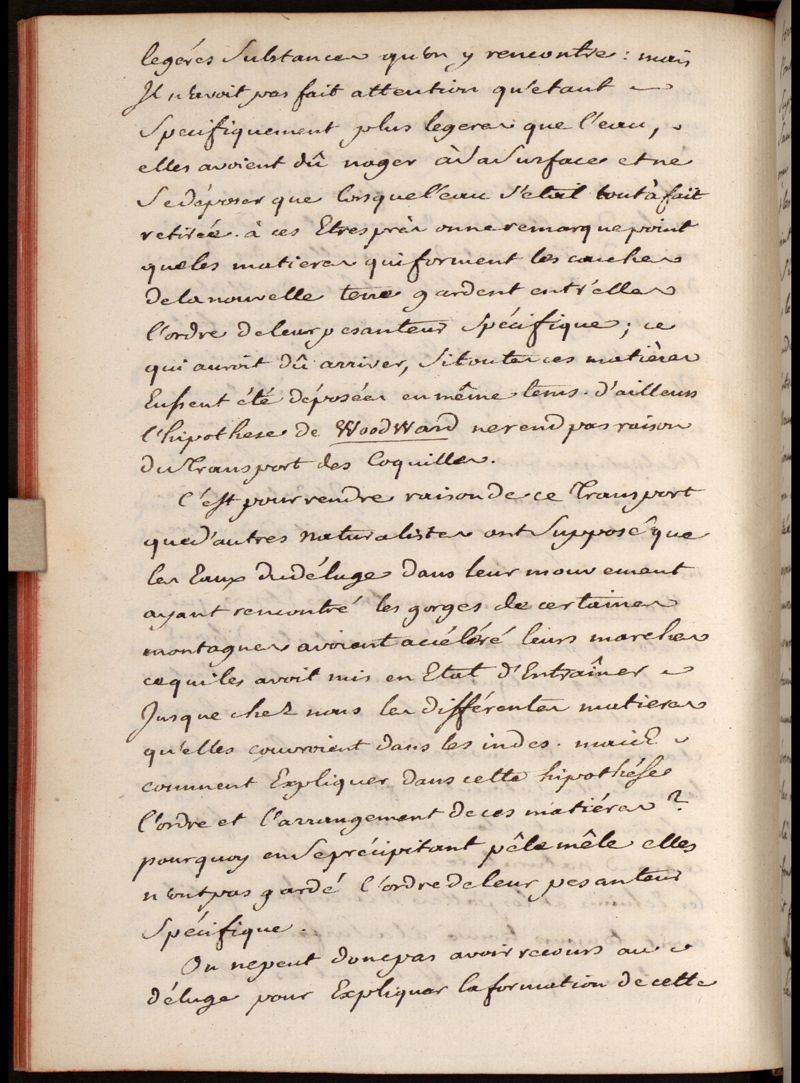 legéres Substances qu'on y rencontre : mais
Il n'avoit pas fait attention qu'etant
Specifiquement plus legeres que l'eau,
elles avoient dû nager à Sa Surface et ne
Se déposer que lorsque l'eau S'etait tout à fait
retirée. à ces Etres près on ne remarque point
que les matieres qui forment les couches
de la nouvelle terre gardent entr'elles
l'ordre de leur pesanteur Spécifique ; ce
qui auroit dû arriver, Si toutes ces matières
Eussent été déposées en même tems. d'ailleurs
l'hipothese de WoodWard ne rend pas raison
du Transport des Coquilles.
C'est pour rendre raison de ce Transport
que d'autres naturalistes ont Supposé que
les Eaux du déluge dans leur mouvement
ayant rencontré les gorges de certaines
montagnes avoient accéléré leurs marches
ce qui les avoit mis en Etat d'Entraîner
Jusque chez nous les différentes matieres
qu'elles couvroient dans les indes. mais
comment Expliquer dans cette hipothése
l'ordre et l'arrangement de ces matiéres ?
pourquoy en Se précipitant pêle mêle elles
n'ont pas gardé l'ordre de leur pesanteur
Spécifique.
On ne peut donc pas avoir recours au
déluge pour Expliquer la formation de cette